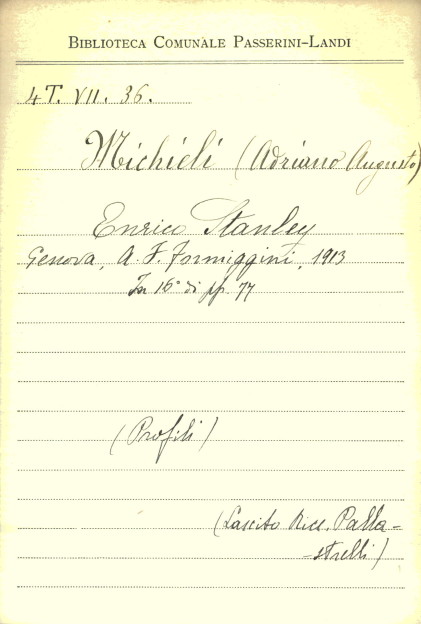 BIBLIOTECA COMUNALE PASSERINI-LANDI
4 T. VII. 36.
Michieli (Adriano Augusto)
Enrico Stanley
Genova, A. F. Formiggini, 1913
In 16° di pp. 77
(Profili)
(Lascito Ricc. Palla-
-strelli)